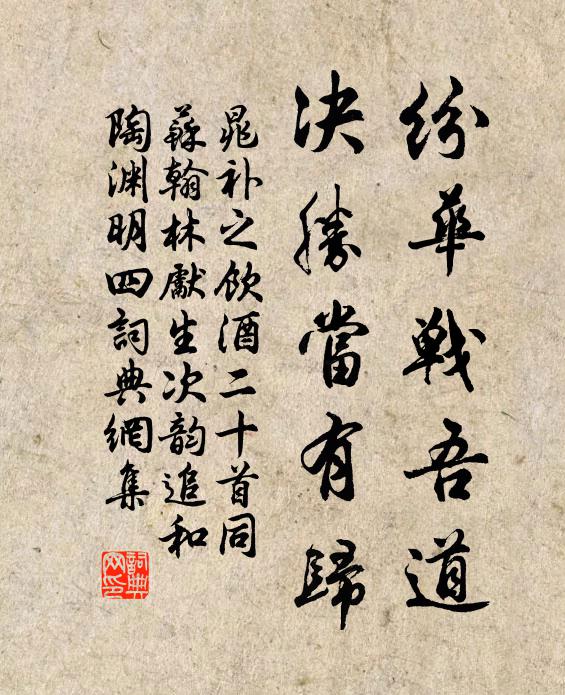 纷華戰吾道
决勝當有歸
晁补之飲酒二十首同
蘇翰林獻生次韵追和
陶渊明四詞典網集
詞典
网印